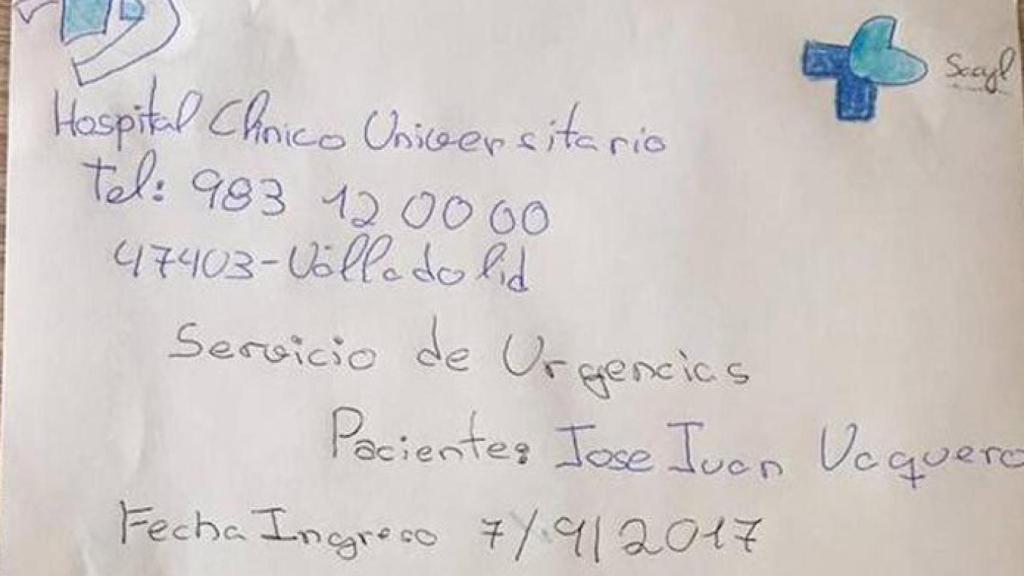 Sacyl
Hospital Clinico Universitario
Tel: 983 12 00 00
47403-Valladolid
Servicio de Urgencias
Paciente: Jose Juan Vaquero
Fecha Ingreso 7/9/2017